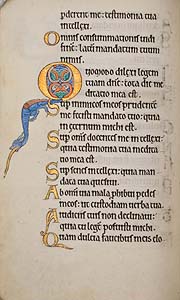 pderent me: testimonia tua
intellexi.
Omnis consummationis uidi
finem: latum mandatum tuum
nimis.
Quomodo dilexi legem
tuam dne: tota die me
ditatio mea est.
Sup inimicos meos prudente
me fecisti mandato tuo: quia
in eternum michi est.
Sup omnes docentes me intellexi:
quia testimonia tua meditatio
mea est.
Sup senes intellexi: quia man
data tua quesiui.
Ab omni uia mala phibui pedes
meos: ut custodiam uerba tua.
A iudiciis tuis non declinaui:
quia tu legem posuisti michi.
Quam dulcia faucibus meis elo